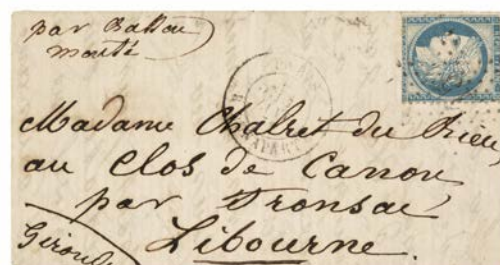 par Ballon
monté
Madame Chalret du Rieu
au Clos de Canon
par Fronsac
Libourne.
Gironde